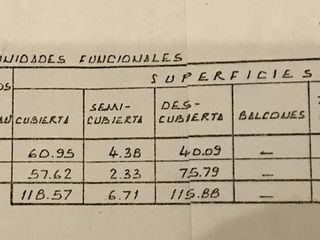 UNIDADES FUNCIONALES
OS SUPERFICIES
CUBIERTA SEMI-CUBIERTA DES-CUBIERTA BALCONES
60.95 4.38 40.09 —
57.62 2.33 75.79 —
118.57 6.71 115.88 —